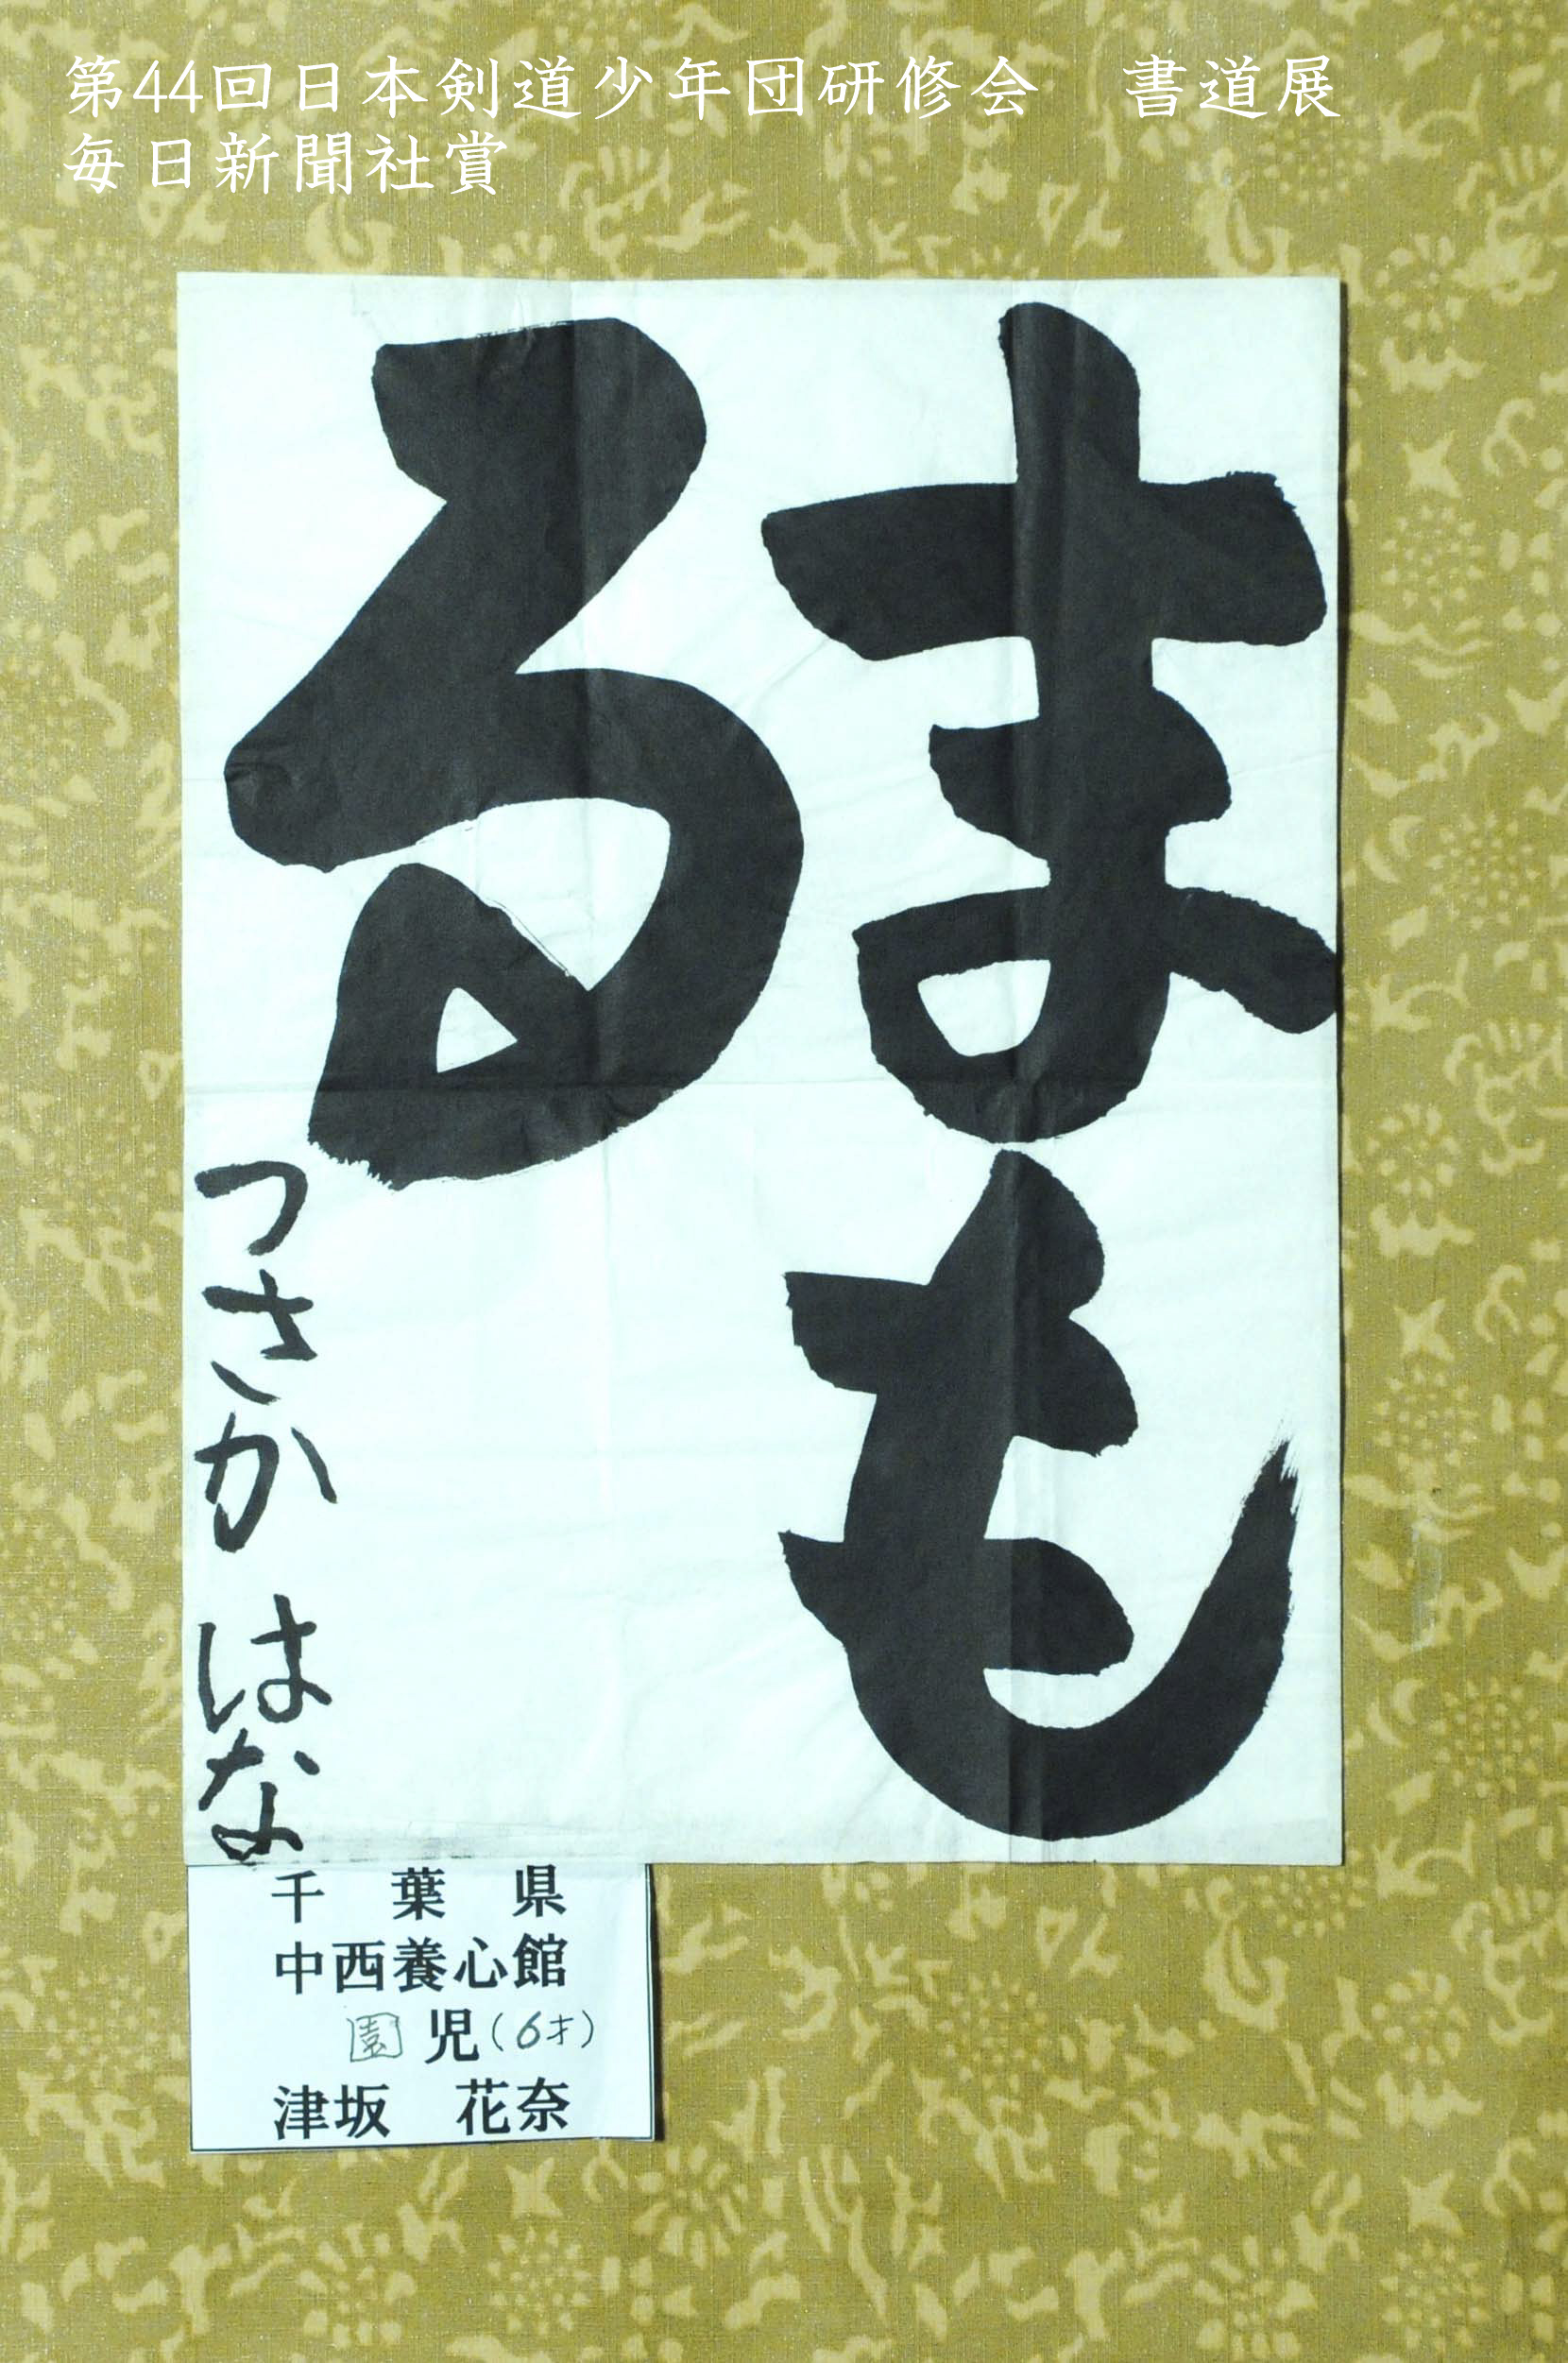 第44回日本剣道少年団研修会　書道展
毎日新聞社賞
まも
る
つさか はな
千葉県
中西養心館
園児(6才)
津坂 花奈